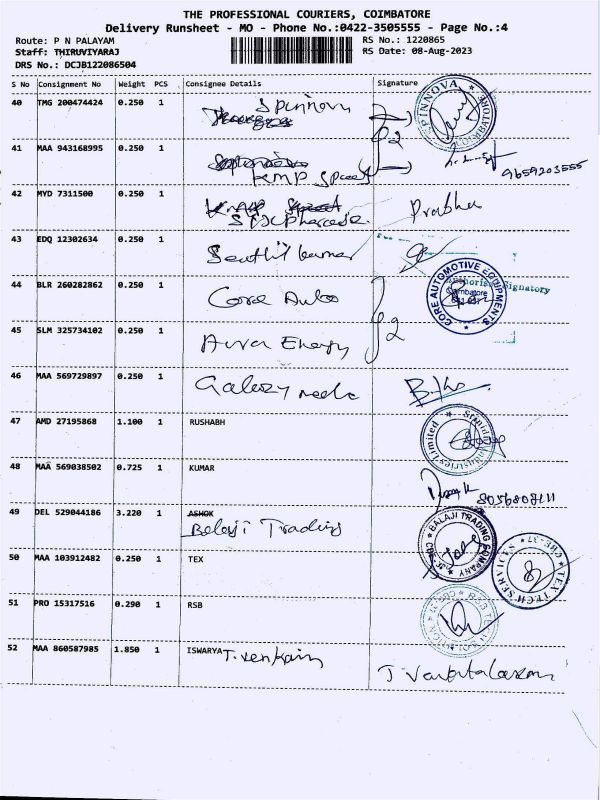 THE PROFESSIONAL COURIERS, COIMBATORE
Delivery Runsheet - MO - Phone No.:0422-3505555 - Page No.:4
Route: P N PALAYAM
RS No.: 1220865
Staff: THIRUVIYARAJ
RS Date: 08-Aug-2023
DRS No.: DCJB122086504
S No Consignment No Weight PCS Consignee Details Signature
40 TMG 200474424 0.250 1 Spinnova
SPINNOVA
41 MAA 943168995 0.250 1
KMP
9659203555
42 MYD 7311500 0.250 1 Prabhu
43 EDQ 12302634 0.250 1 Senthil kumar
44 BLR 260282862 0.250 1 Core Auto
CORE AUTOMOTIVE EQUIPMENTS
Coimbatore
Authorised Signatory
45 SLM 325734102 0.250 1 Energy
46 MAA 569729897 0.250 1 Galaxy
47 AMD 27195868 1.100 1 RUSHABH
Industries Limited
48 MAA 569038502 0.725 1 KUMAR
49 DEL 529044186 3.220 1 ASHOK
Balaji Trading
BALAJI TRADING COMPANY
50 MAA 103912482 0.250 1 TEX
TEX TECH
CBE-37
51 PRO 15317516 0.290 1 RSB
52 MAA 860587985 1.850 1 ISWARYA